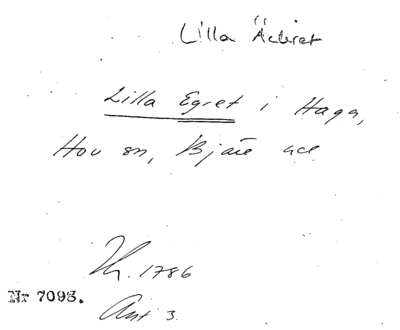 Lilla Äckret
Lilla Egret i Haga,
Hov sn, Bjäre hd
1786
Nr 7098.
Avt 3.